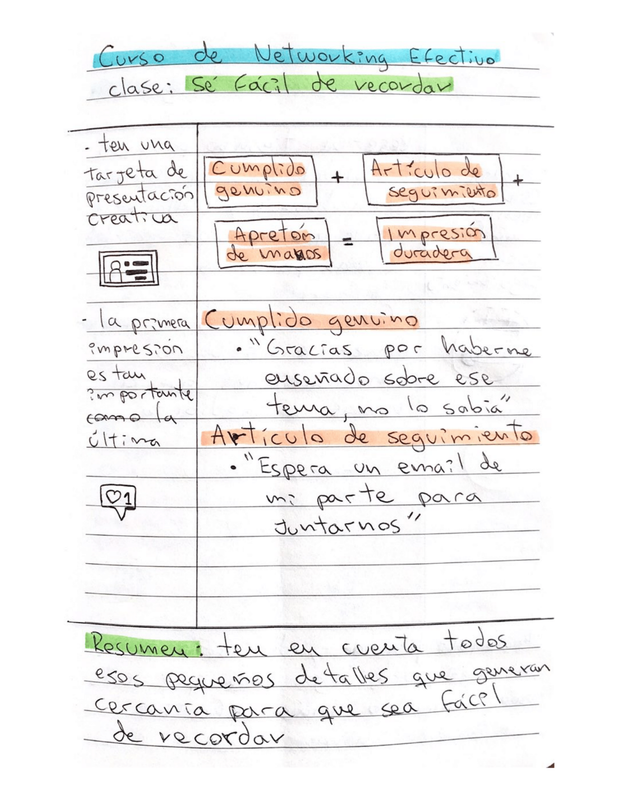 Curso de Networking Efectivo
clase: Sé fácil de recordar
- ten una
tarjeta de
presentación
creativa
Cumplido
genuino
+
Artículo de
seguimiento
+
Apretón
de manos
=
Impresión
duradera
- la primera
impresión
es tan
importante
como la
última
♡1
Cumplido genuino
• "Gracias por haberme
enseñado sobre ese
tema, no lo sabía"
Artículo de seguimiento
• "Espera un email de
mi parte para
juntarnos"
Resumen: ten en cuenta todos
esos pequeños detalles que generan
cercanía para que sea fácil
de recordar